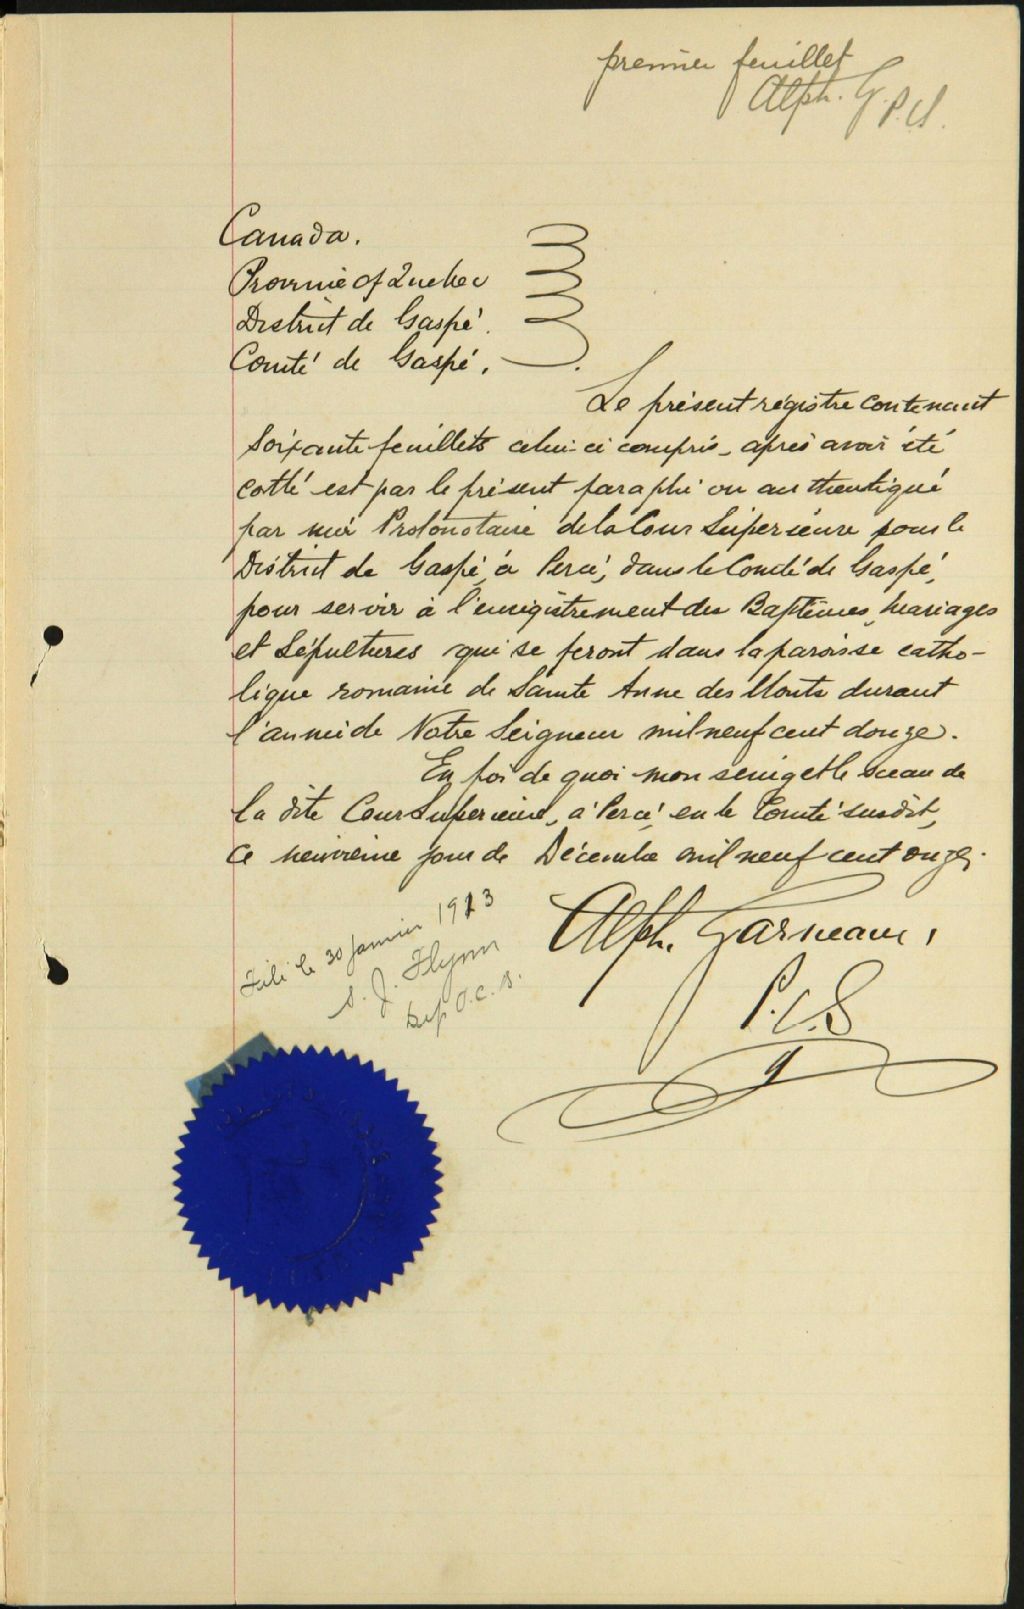 premier feuillet
Alph. G. P.C.S.
Canada.
Province of Quebec
District de Gaspé.
Comté de Gaspé.
Le présent régistre contenant
soixante feuillets celui-ci compris, après avoir été
cotté est par le présent paraphé ou authentiqué
par moi Protonotaire de la Cour Supérieure pour le
District de Gaspé, à Percé, dans le Comté de Gaspé,
pour servir à l'enregistrement des Baptêmes, Mariages
et Sépultures qui se feront dans la paroisse catho-
lique romaine de Sainte Anne des Monts durant
l'année de Notre Seigneur mil neuf cent douze.
En foi de quoi mon seing et le sceau de
la dite Cour Supérieure, à Percé, en le Comté susdit,
ce neuvième jour de Décembre mil neuf cent onze.
Alph. Garneau,
P.C.S
Filé le 30 janvier 1913
S. J. Flynn
Dep P.C.S.